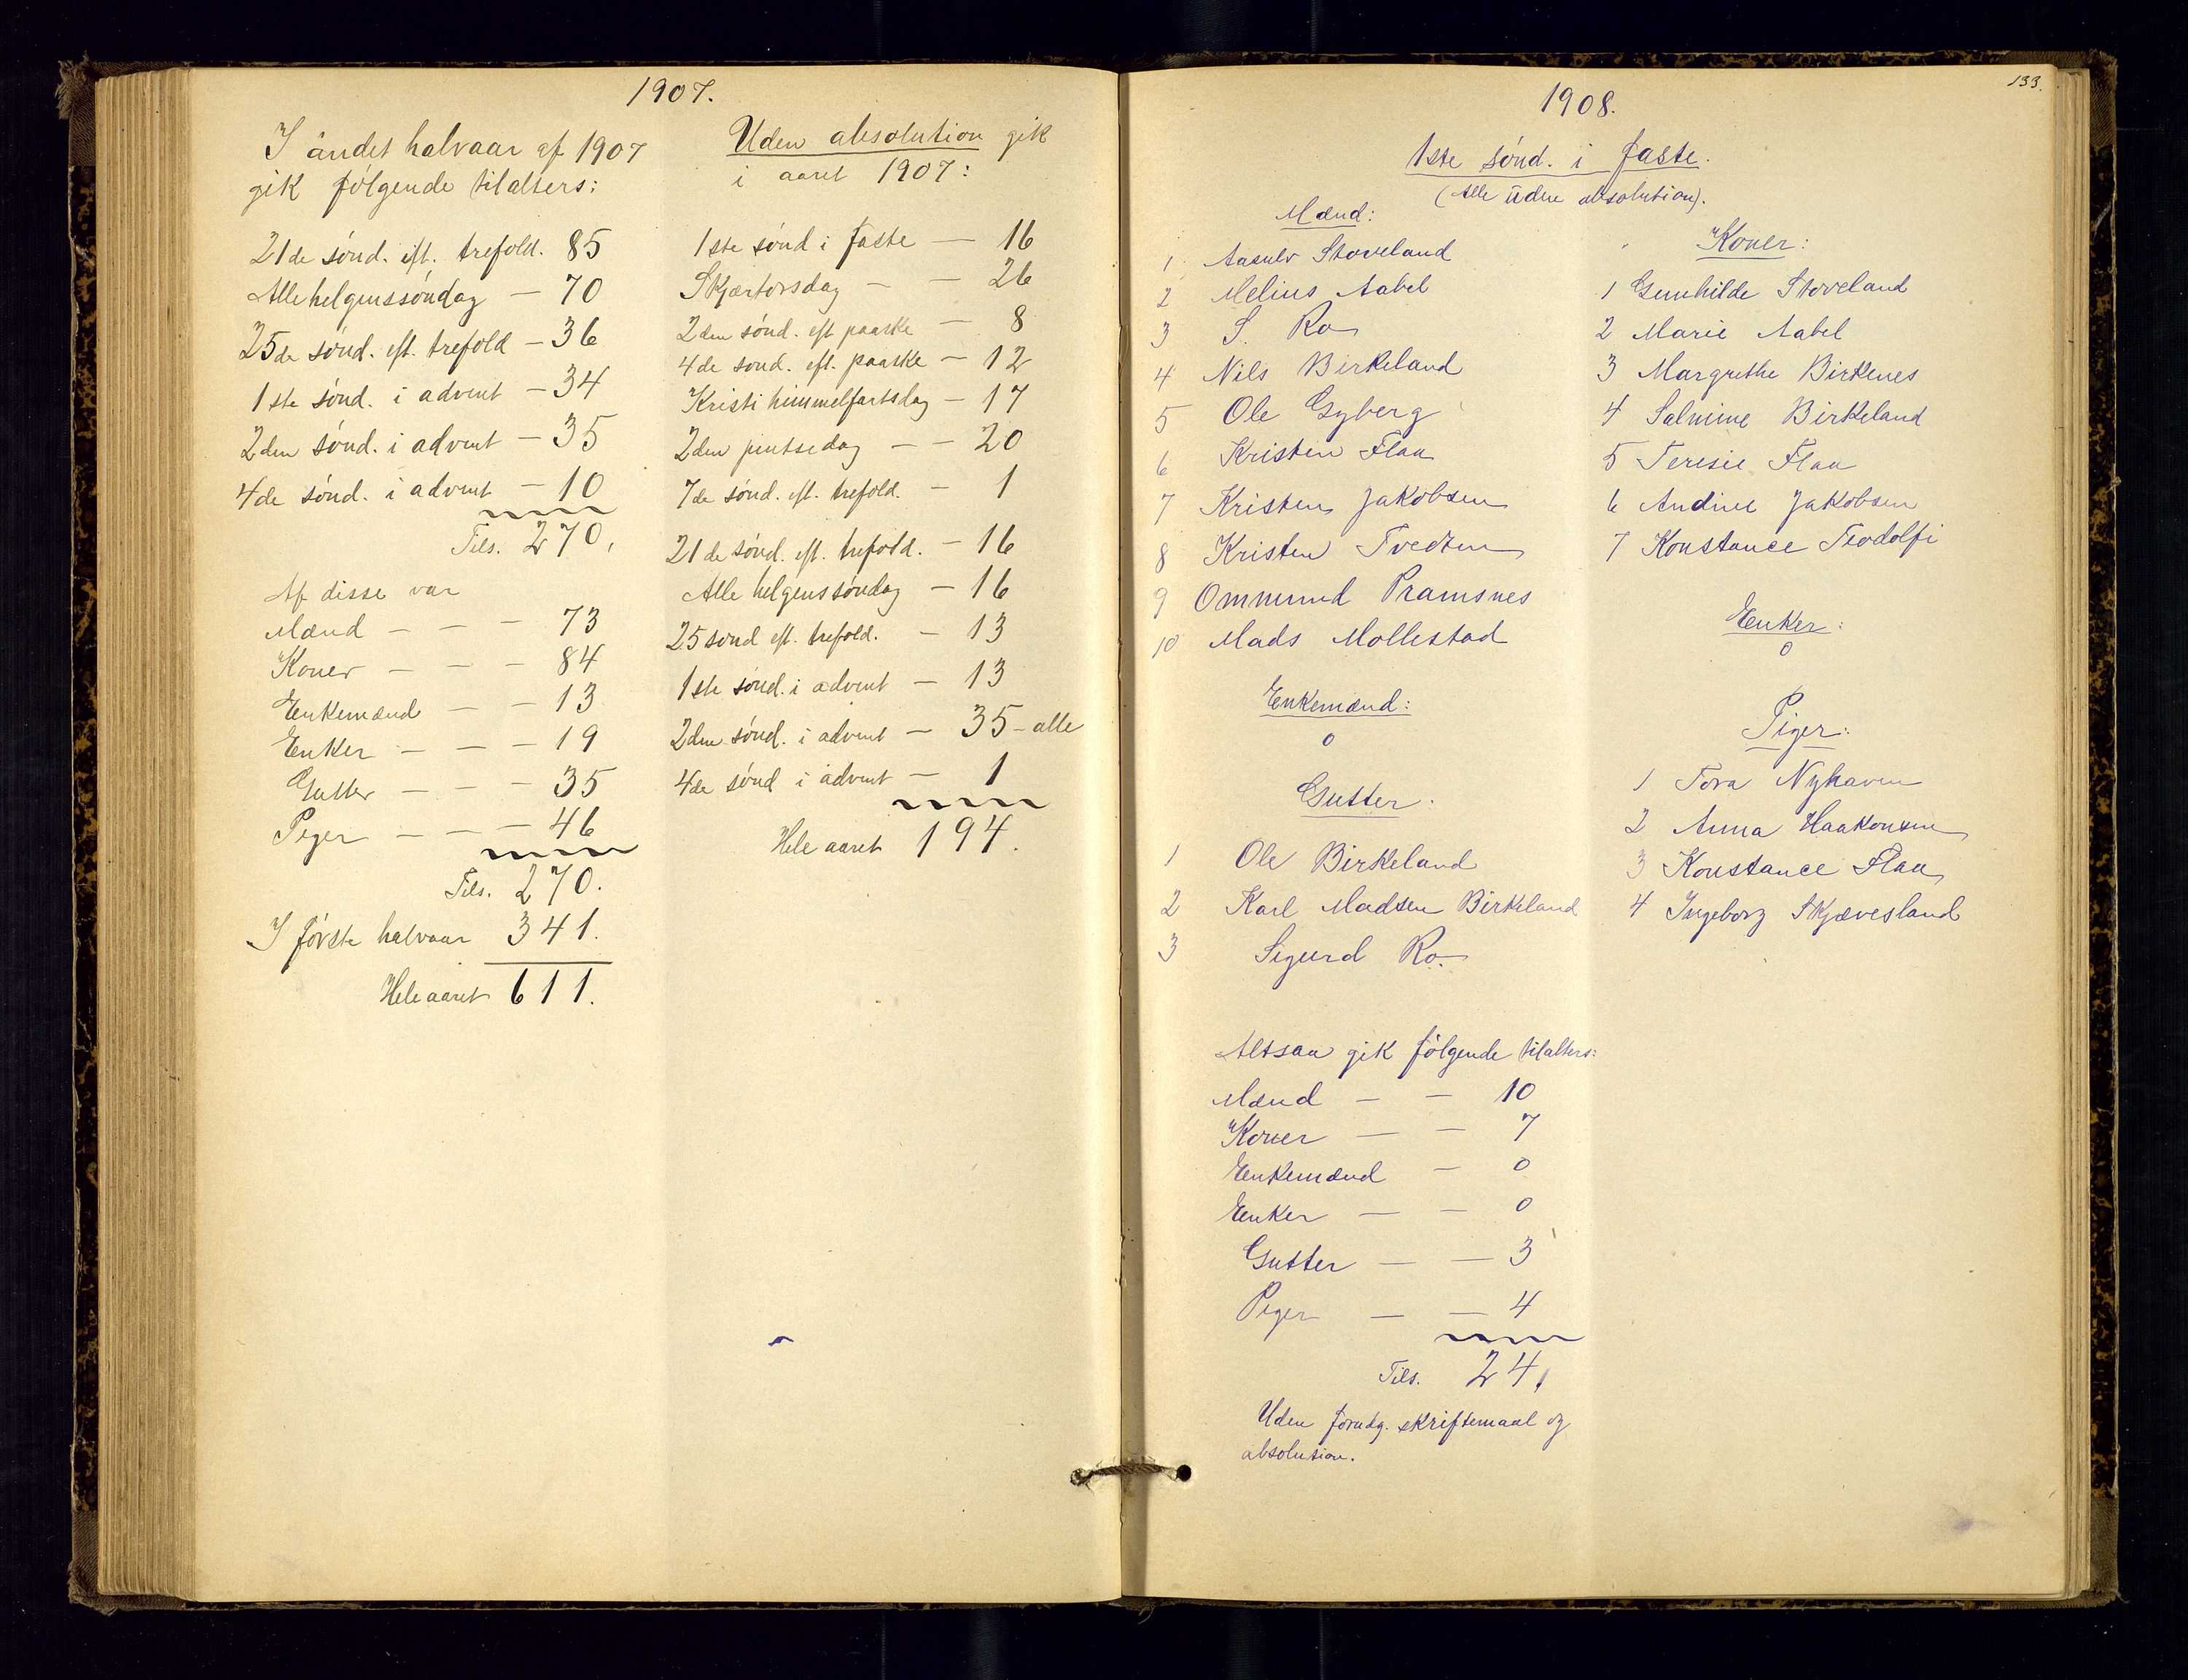 1907.
I andet halvaar af 1907
gik følgende tilalters:
21de sønd. eft. trefold. 85
Alle helgenssøndag — 70
25de sønd. eft. trefold — 36
1ste sønd. i advent — 34
2den sønd. i advent — 35
4de sønd. i advent — 10
Tils. 270.
Af disse var
Mænd — — — 73
Koner — — — 84
Enkemænd — — 13
Enker — — — 19
Gutter — — — 35
Piger — — — 46
Tils. 270.
I første halvaar 341.
Hele aaret 611.
Uden absolution gik
i aaret 1907:
1ste sønd i faste — 16
Skjærtorsdag — — 26
2den sønd. eft paaske — 8
4de sønd. eft. paaske — 12
Kristi himmelfartsdag — 17
2den pintsedag — — 20
7de sønd. eft. trefold. — 1
21de sønd. eft. trefold. — 16
Alle helgenssøndag — 16
25 sønd eft. trefold. — 13
1ste sønd. i advent — 13
2den sønd. i advent — 35 — alle
4de sønd i advent — 1
Hele aaret 194.
133.
1908.
1ste sønd. i faste.
(Alle uden absolution).
Mænd:
1 Aasulv Stoveland
2 Melius Aabel
3 S. Ro
4 Nils Birkeland
5 Ole Gyberg
6 Kristen Flaa
7 Kristen Jakobsen
8 Kristen Tvedten
9 Ommund Pramsnes
10 Mads Mollestad
Enkemænd:
0
Gutter:
1 Ole Birkeland
2 Karl Madsen Birkeland
3 Sigurd Ro.
Koner:
1 Gunhilde Stoveland
2 Marie Aabel
3 Margrethe Birkenes
4 Salmine Birkeland
5 Teresie Flaa
6 Andine Jakobsen
7 Konstance Teodolfi
Enker:
0
Piger:
1 Tora Nyhaven
2 Anna Haakonsen
3 Konstance Flaa
4 Ingeborg Skjævesland
Altsaa gik følgende tilalters:
Mænd — — 10
Koner — — 7
Enkemænd — 0
Enker — — 0
Gutter — — 3
Piger — — 4
Tils. 24.
Uden forudg. skriftemaal og
absolution.